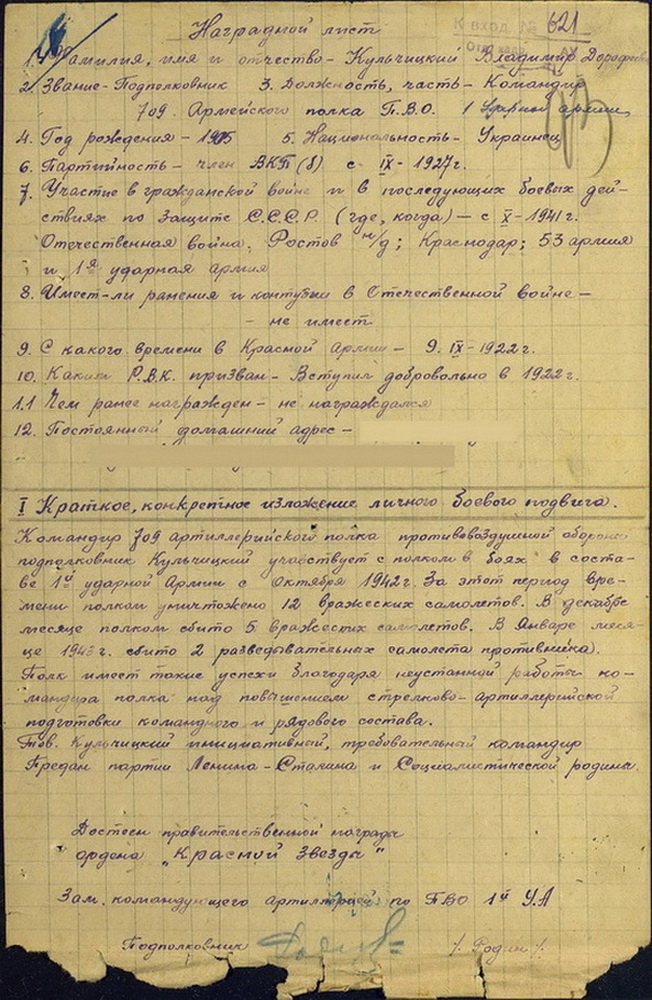 Наградной лист
К вход. № 621
1. Фамилия, имя и отчество - Кульчицкий Владимир Дорофеевич
2. Звание - Подполковник 3. Должность, часть - Командир
709 Армейского полка П.В.О. 1 Ударной армии
4. Год рождения - 1905 5. Национальность - Украинец
6. Партийность - член ВКП(б) с IX - 1927г.
7. Участие в гражданской войне и в последующих боевых дей-
ствиях по защите С.С.С.Р. (где, когда) - с X - 1941 г.
Отечественная война. Ростов н/д; Краснодар; 53 армия
и 1я ударная армия
8. Имеет-ли ранения и контузии в Отечественной войне -
- не имеет
9. С какого времени в Красной армии - 9. IX - 1922г.
10. Каким Р.В.К. призван - Вступил добровольно в 1922 г.
11 Чем ранее награжден - не награждался
12. Постоянный домашний адрес -
I Краткое, конкретное изложение личного боевого подвига.
Командир 709 артиллерийского полка противовоздушной обороны
подполковник Кульчицкий участвует с полком в боях в соста-
ве 1й ударной Армии с Октября 1942г. За этот период вре-
мени полком уничтожено 12 вражеских самолетов. В декабре
месяце полком сбито 5 вражеских самолетов. В Январе меся-
це 1943г. сбито 2 разведывательных самолета противника).
Полк имеет такие успехи благодаря неустанной работы ко-
мандира полка над повышением стрелково-артиллерийской
подготовки командного и рядового состава.
Тов. Кульчицкий инициативный, требовательный командир
Предан партии Ленина - Сталина и Социалистической родины.
Достоен правительственной награды
ордена „Красной Звезды"
Зам. командующего артиллерией по ПВО 1й УА
Подполковник / Родин /.